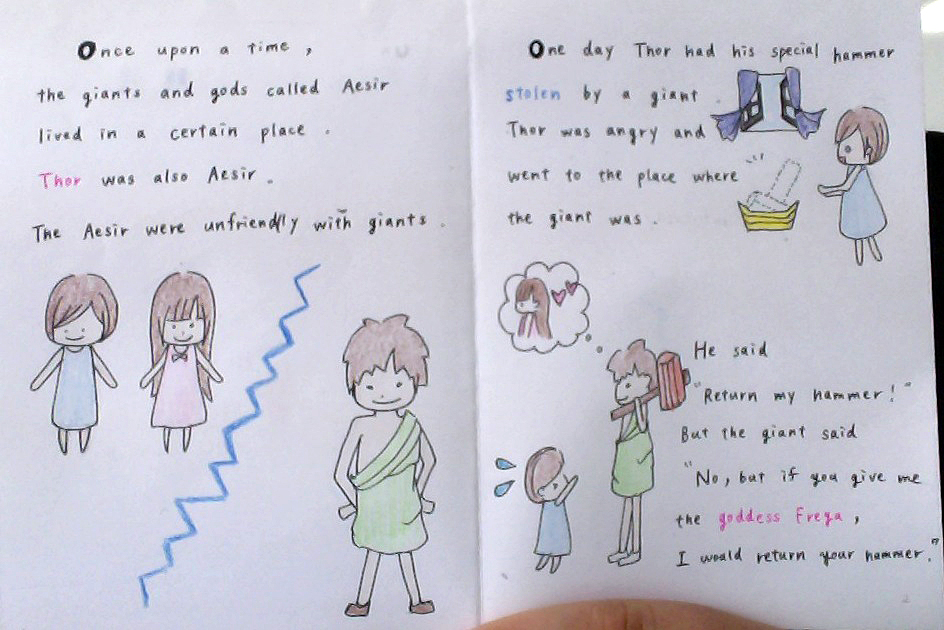 Once upon a time ,
the giants and gods called Aesir
lived in a certain place .
Thor was also Aesir .
The Aesir were unfriendly with giants .
One day Thor had his special hammer
stolen by a giant .
Thor was angry and
went to the place where
the giant was .
He said
"Return my hammer!"
But the giant said
"No, but if you give me
the goddess Freya ,
I would return your hammer."